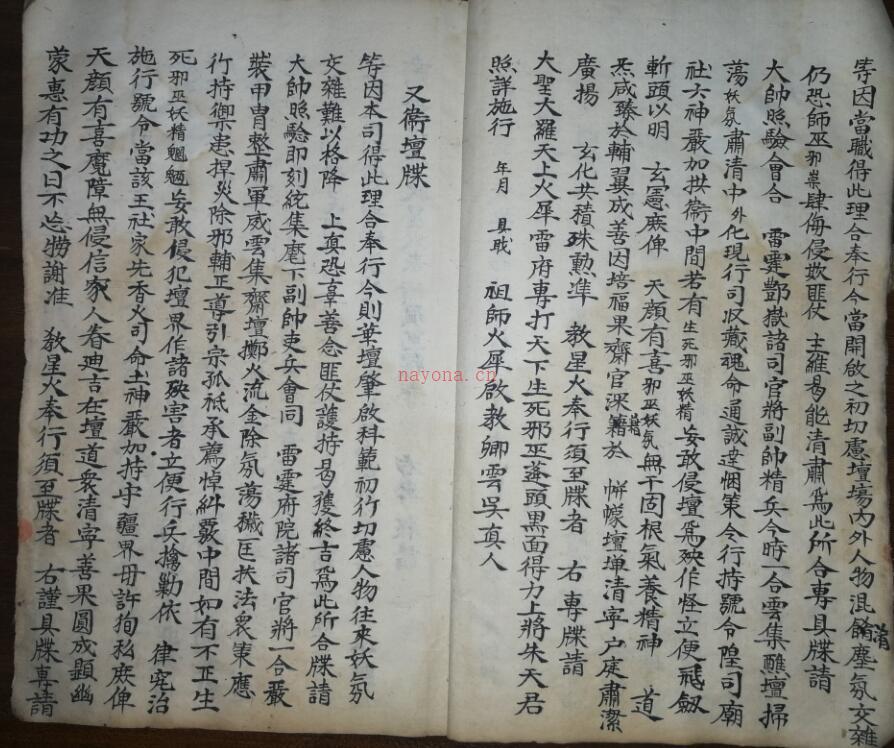 等因當職得此理合奉行今當開啟之初切慮壇場內外人物混餚淆塵氛交雜
仍恐師巫邪祟肆侮侵欺匪仗 主維曷能清肅爲此所合專具牒請
大帥照驗會合 雷霆酆嶽諸司官將副帥精兵今時一合雲集醮壇掃
蕩妖氛肅清中外化現行司收藏魂命通誠達悃策令行持號令隍司廟
社六神嚴加拱衛中間若有生死邪巫妖精妄敢侵壇爲殃作怪立便飛劍
斬頭以明 玄憲庶俾 天顏有喜邪巫妖氛無干固根氣養精神 道
炁咸臻於輔翼成善因培福果齋官深籍藉於 帡幪壇墠清寧户庭肅潔
廣揚 玄化共積殊勳準 教星火奉行須至牒者 右專牒請
大聖大羅天上火犀雷府專打天下生死邪巫蓬頭黑面得力上將朱天君
照詳施行 年月 具職 祖師火犀啟教卿雲吳真人
又衛壇牒
等因本司得此理合奉行今則華壇肇啟科範初行切慮人物往來妖氛
交雜難以格降 上真恐辜善念匪仗護持曷獲終吉爲此所合牒請
大帥照驗即刻統集麾下副帥吏兵會同 雷霆府院諸司官將一合嚴
裝甲胄整肅軍威雲集齋壇擲火流金除氛蕩穢匡扶法衆策應
行持禦患捍災除邪輔正導引宗孤祗承薦悼糾覈中間如有不正生
死邪巫妖精魍魎妄敢侵犯壇界作諸殃害者立便行兵擒勦依 律究治
施行號令當該王社家先香火司命土神嚴加持守疆界毋許徇私庶俾
天顏有喜魔障無侵信家人眷迪吉在壇道衆清寧善果圓成顯幽
蒙惠有功之日不忘撈謝准 教星火奉行須至牒者 右謹具牒專請
nayona.cn